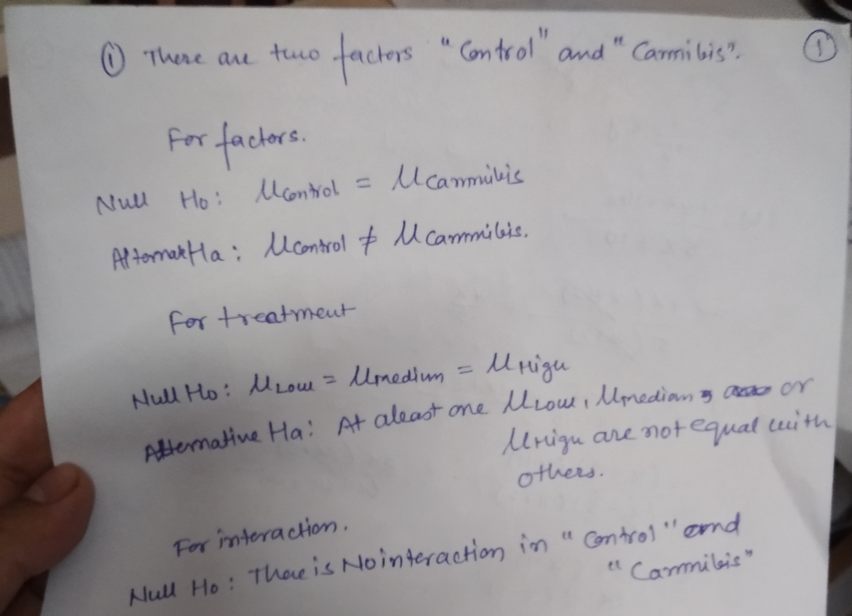 ① There are two factors "Control" and "Cannibis". ①
For factors.
Null Ho: μcontrol = μcannibis
Alternat Ha: μcontrol ≠ μcannibis.
For treatment
Null Ho: μLow = μmedium = μHigh
Alternative Ha: At aleast one μLow, μmedian, or
μHigh are not equal with
others.
For interaction.
Null Ho: There is No interaction in "Control" and
"Cannibis"